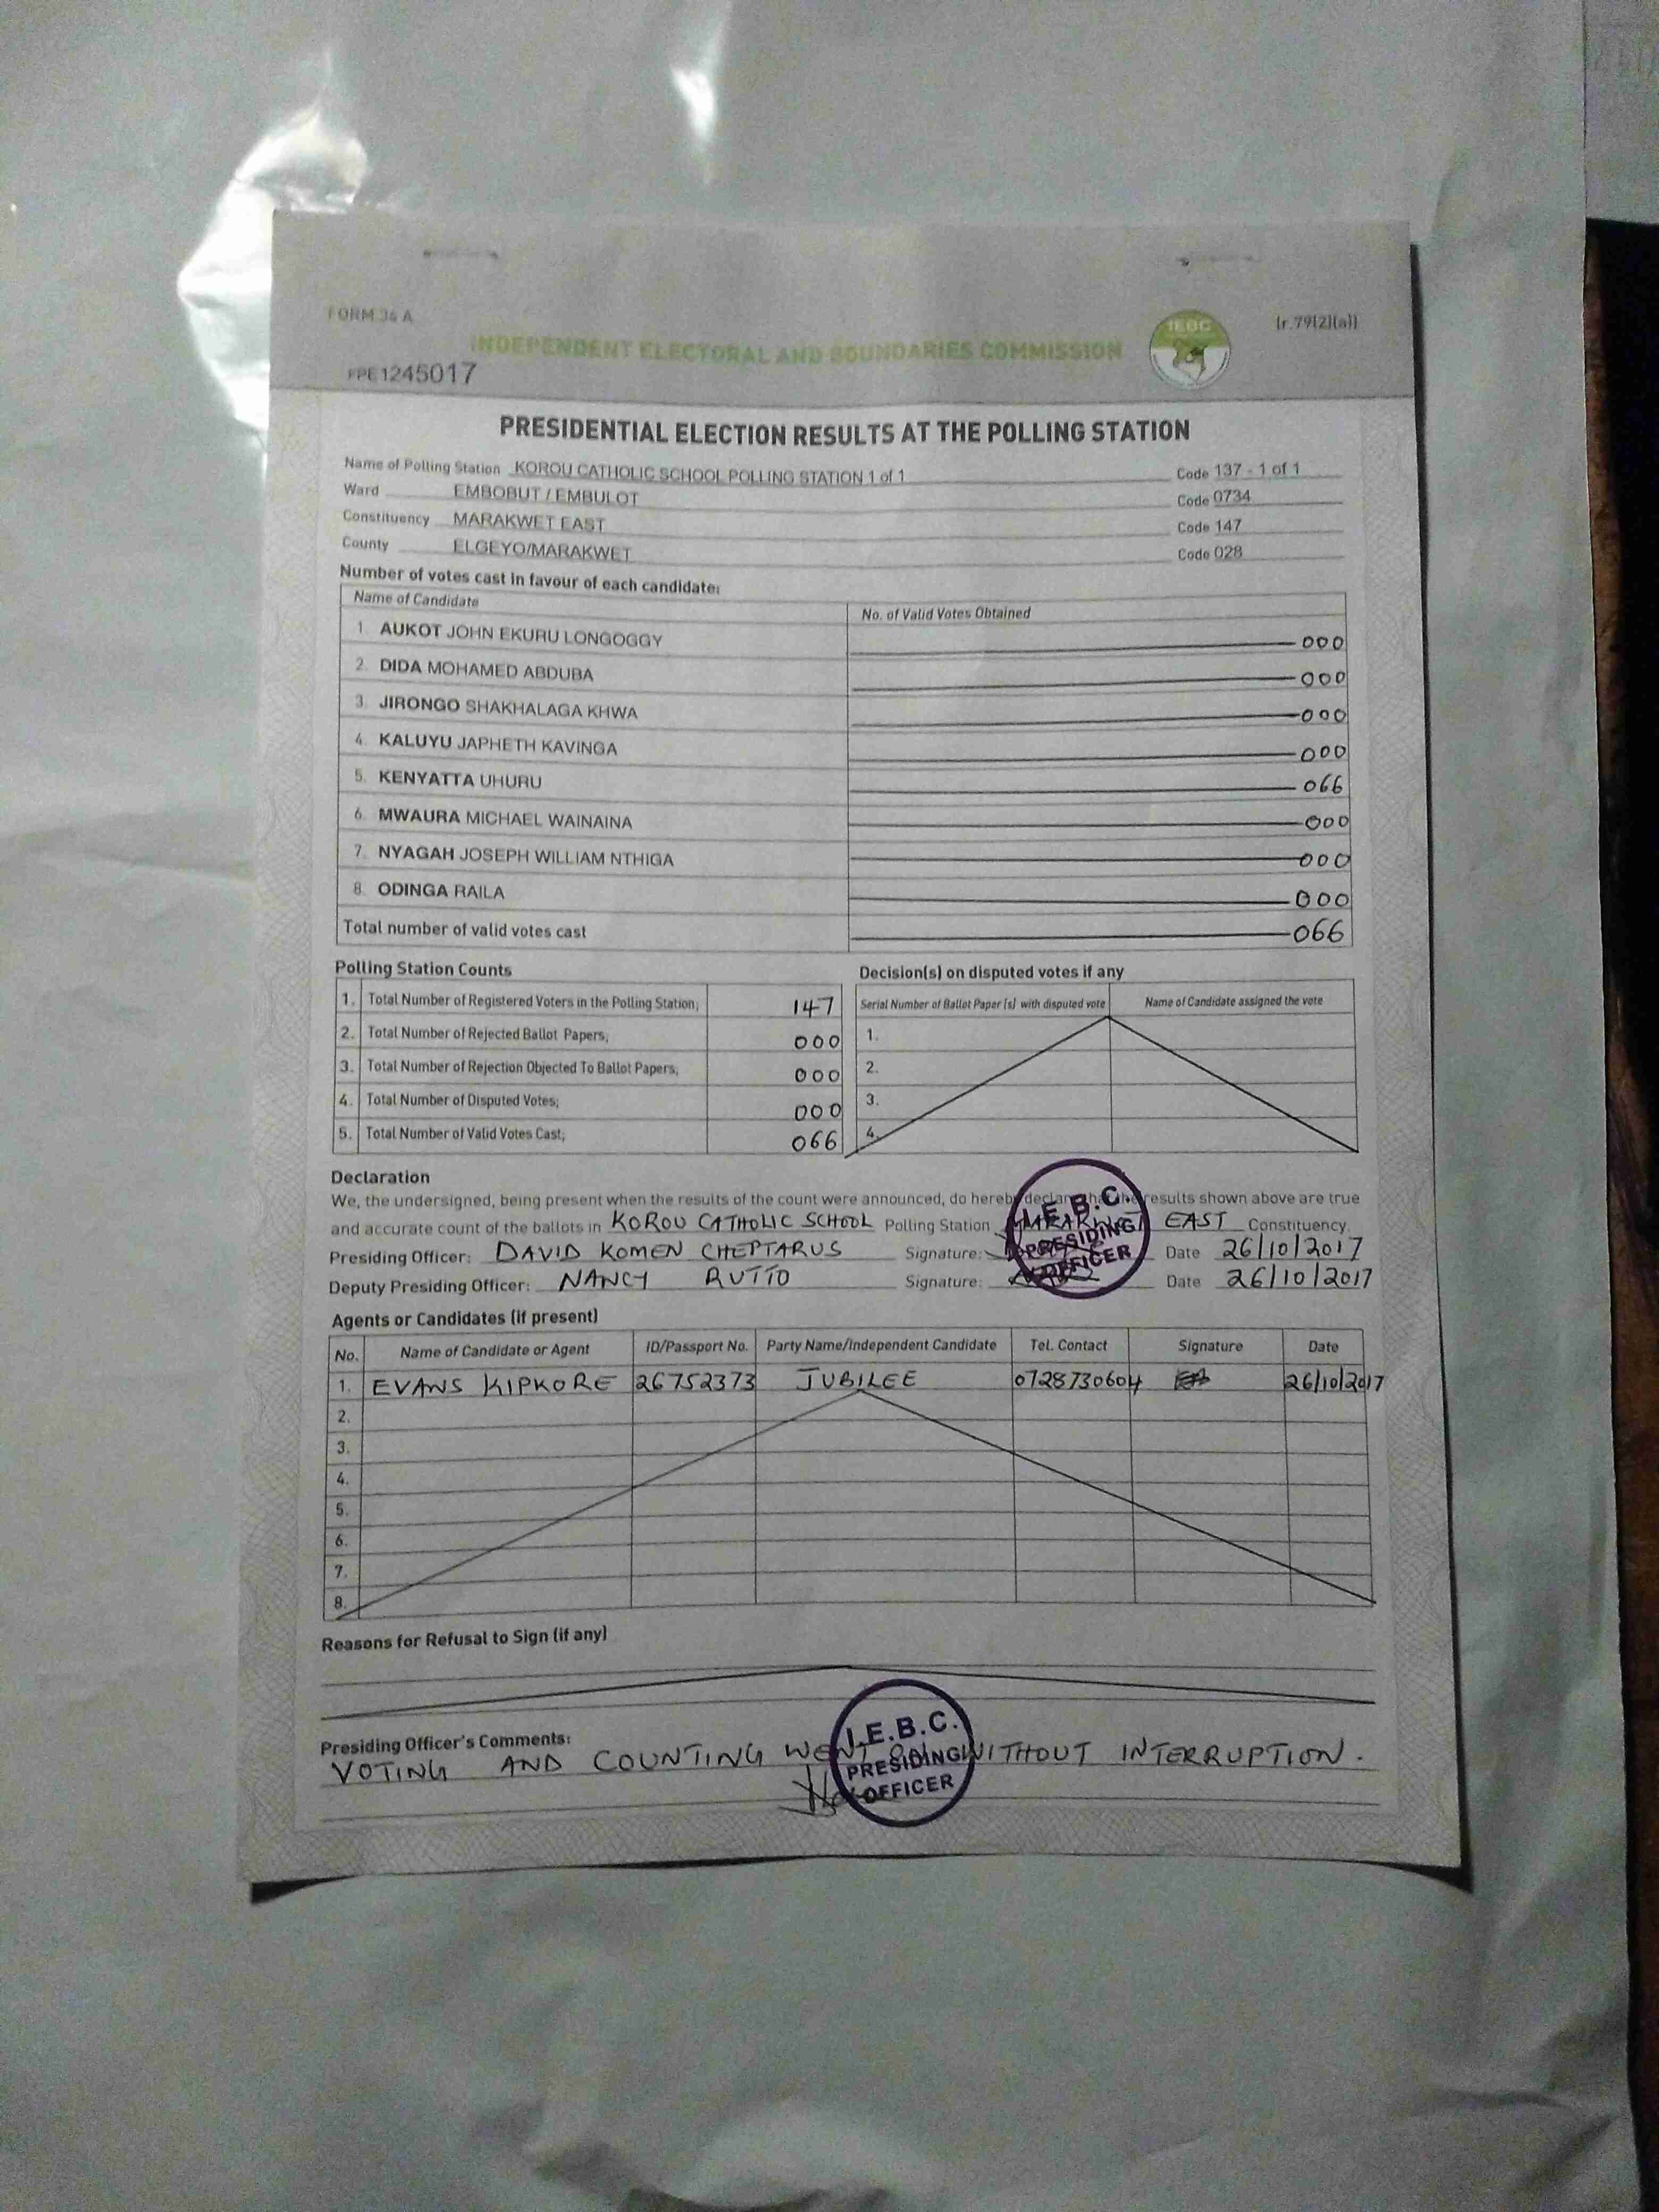 FORM 34 A
(r.79(2)(a))
IEBC
INDEPENDENT ELECTORAL AND BOUNDARIES COMMISSION
FPE1245017
PRESIDENTIAL ELECTION RESULTS AT THE POLLING STATION
Name of Polling Station KOROU CATHOLIC SCHOOL POLLING STATION 1 of 1 Code 137 - 1 of 1
Ward EMBOBUT / EMBULOT Code 0734
Constituency MARAKWET EAST Code 147
County ELGEYO/MARAKWET Code 028
Number of votes cast in favour of each candidate:
Name of Candidate No. of Valid Votes Obtained
1. AUKOT JOHN EKURU LONGOGGY 000
2. DIDA MOHAMED ABDUBA 000
3. JIRONGO SHAKHALAGA KHWA 000
4. KALUYU JAPHETH KAVINGA 000
5. KENYATTA UHURU 066
6. MWAURA MICHAEL WAINAINA 000
7. NYAGAH JOSEPH WILLIAM NTHIGA 000
8. ODINGA RAILA 000
Total number of valid votes cast 066
Polling Station Counts
1. Total Number of Registered Voters in the Polling Station; 147
2. Total Number of Rejected Ballot Papers; 000
3. Total Number of Rejection Objected To Ballot Papers; 000
4. Total Number of Disputed Votes; 000
5. Total Number of Valid Votes Cast; 066
Decision(s) on disputed votes if any
Serial Number of Ballot Paper (s) with disputed vote Name of Candidate assigned the vote
1.
2.
3.
4.
Declaration
We, the undersigned, being present when the results of the count were announced, do hereby declare that the results shown above are true
and accurate count of the ballots in KOROU CATHOLIC SCHOOL Polling Station MARAKWET EAST Constituency.
Presiding Officer: DAVID KOMEN CHEPTARUS Signature: Date 26/10/2017
Deputy Presiding Officer: NANCY RUTTO Signature: Date 26/10/2017
I.E.B.C.
PRESIDING
OFFICER
Agents or Candidates (if present)
No. Name of Candidate or Agent ID/Passport No. Party Name/Independent Candidate Tel. Contact Signature Date
1. EVANS KIPKORE 26752373 JUBILEE 0728730604 26/10/2017
2.
3.
4.
5.
6.
7.
8.
Reasons for Refusal to Sign (if any)
Presiding Officer's Comments:
VOTING AND COUNTING WENT ON WITHOUT INTERRUPTION.
I.E.B.C.
PRESIDING
OFFICER